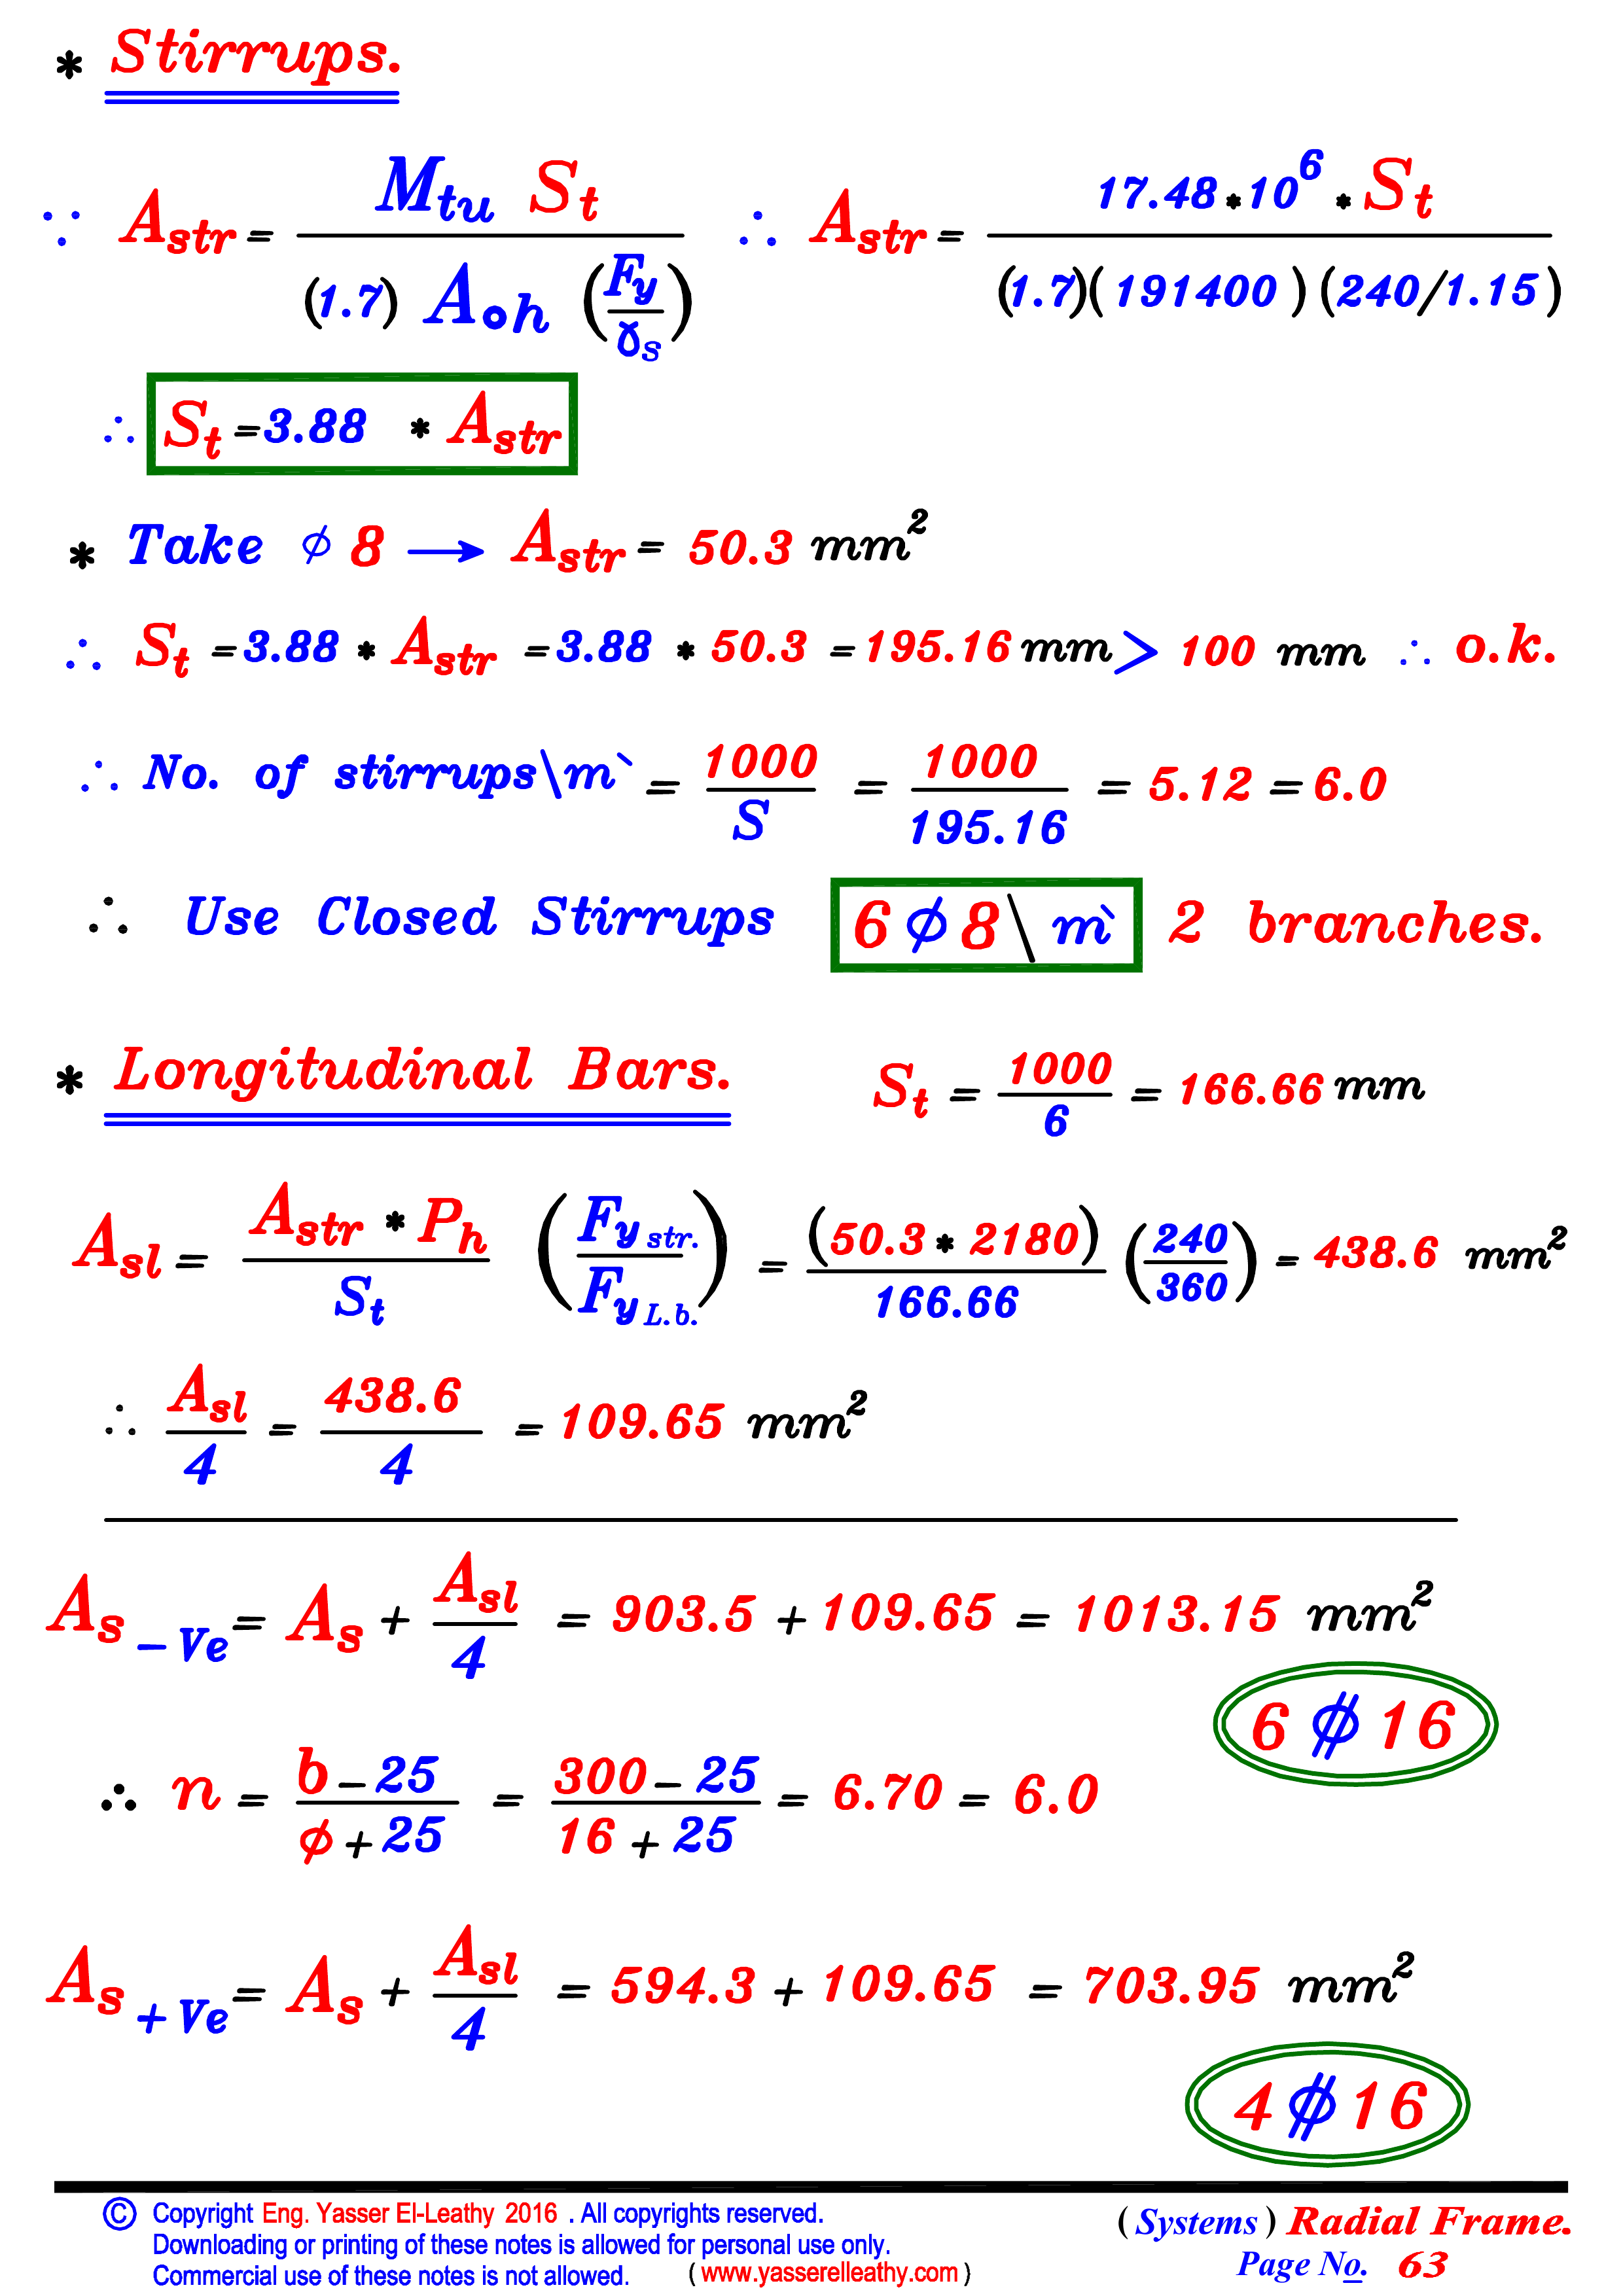 * Stirrups.
∵ Astr = Mtu St / (1.7) Aoh (Fy/γs) ∴ Astr = 17.48*10^6 * St / (1.7)(191400)(240/1.15)
∴ St = 3.88 * Astr
* Take ϕ 8 → Astr = 50.3 mm²
∴ St = 3.88 * Astr = 3.88 * 50.3 = 195.16 mm > 100 mm ∴ o.k.
∴ No. of stirrups\m` = 1000/S = 1000/195.16 = 5.12 = 6.0
∴ Use Closed Stirrups 6 ϕ 8 \ m` 2 branches.
* Longitudinal Bars. St = 1000/6 = 166.66 mm
Asl = Astr * Ph / St (Fy str. / Fy L.b.) = (50.3 * 2180) / 166.66 (240/360) = 438.6 mm²
∴ Asl/4 = 438.6/4 = 109.65 mm²
As -Ve = As + Asl/4 = 903.5 + 109.65 = 1013.15 mm²
6 ϕ 16
∴ n = b - 25 / ϕ + 25 = 300 - 25 / 16 + 25 = 6.70 = 6.0
As +Ve = As + Asl/4 = 594.3 + 109.65 = 703.95 mm²
4 ϕ 16
© Copyright Eng. Yasser El-Leathy 2016 . All copyrights reserved.
Downloading or printing of these notes is allowed for personal use only.
Commercial use of these notes is not allowed. ( www.yasserelleathy.com )
( Systems ) Radial Frame.
Page No. 63